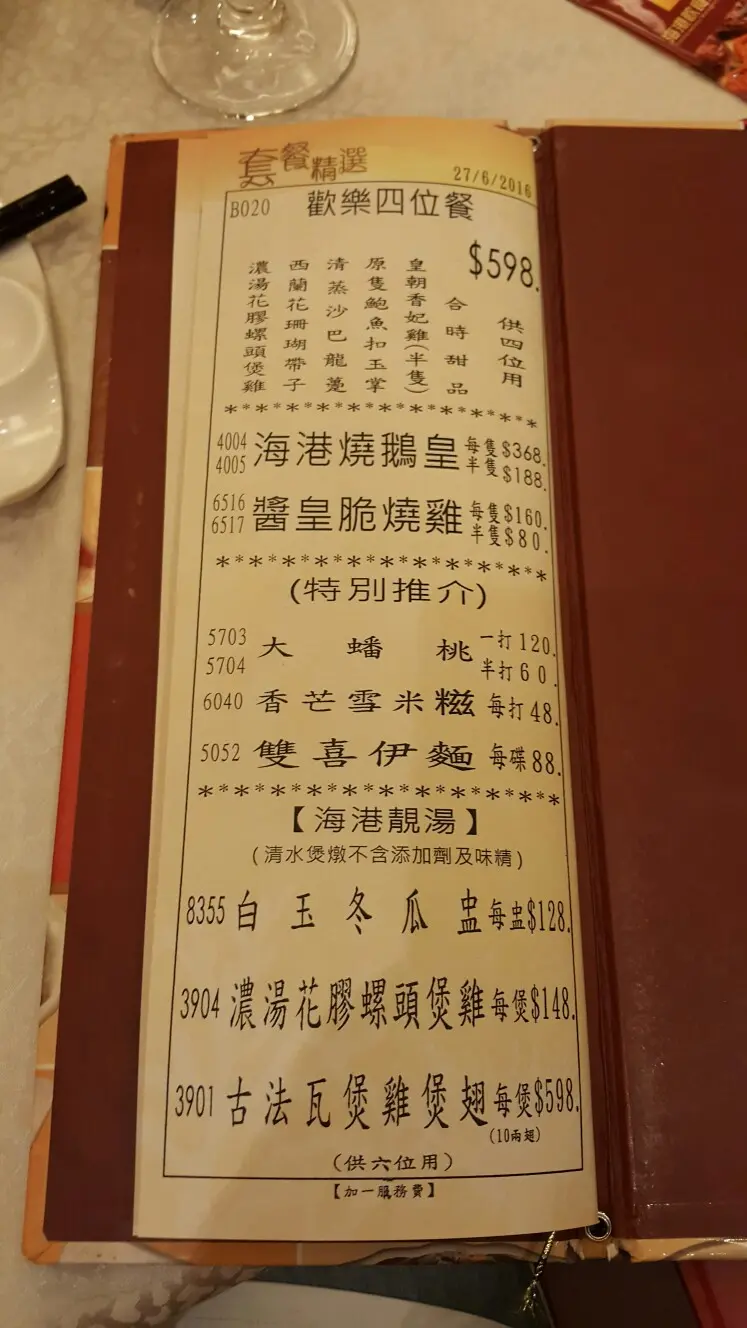 套餐精選
27/6/2016
B020 歡樂四位餐
$598.
濃湯花膠螺頭煲雞
西蘭花珊瑚帶子
清蒸沙巴龍躉
原隻鮑魚扣玉掌
皇朝香妃雞(半隻)
合時甜品
供四位用
*******************
4004 4005 海港燒鵝皇 每隻$368. 半隻$188.
6516 6517 醬皇脆燒雞 每隻$160. 半隻$80.
*******************
(特別推介)
5703 5704 大蟠桃 一打120. 半打60.
6040 香芒雪米糍 每打48.
5052 雙喜伊麵 每碟88.
*******************
【海港靚湯】
(清水煲燉不含添加劑及味精)
8355 白玉冬瓜盅 每盅$128.
3904 濃湯花膠螺頭煲雞 每煲$148.
3901 古法瓦煲雞煲翅 每煲$598.
(10兩翅)
(供六位用)
【加一服務費】